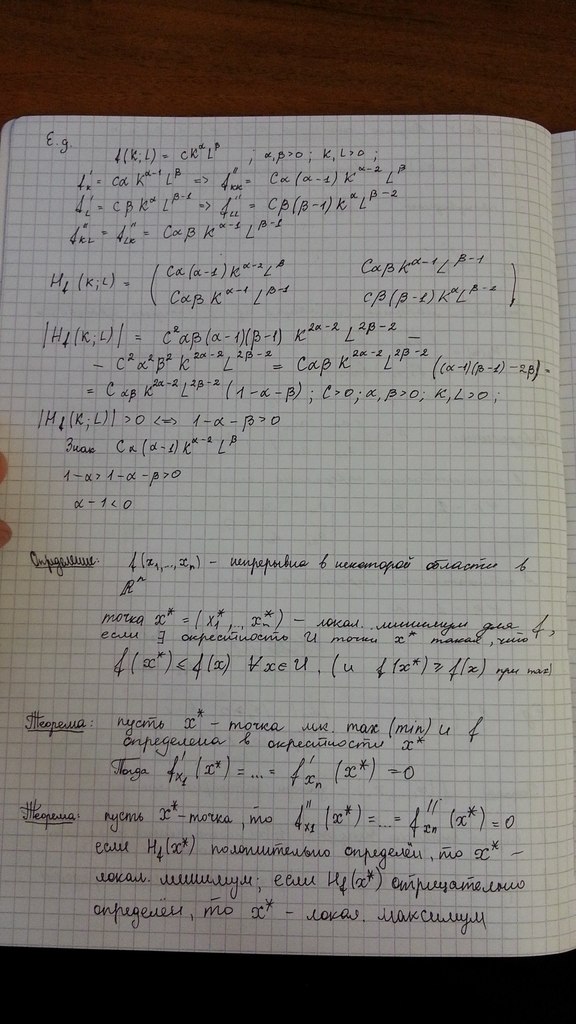 E.g.
f(K;L) = cK^α L^β ; α,β>0 ; K,L>0 ;
f'_K = Cα K^{α-1} L^β => f''_{KK} = Cα(α-1) K^{α-2} L^β
f'_L = Cβ K^α L^{β-1} => f''_{LL} = Cβ(β-1) K^α L^{β-2}
f''_{KL} = f''_{LK} = Cαβ K^{α-1} L^{β-1}
H_f (K;L) = ( Cα(α-1) K^{α-2} L^β Cαβ K^{α-1} L^{β-1}
Cαβ K^{α-1} L^{β-1} Cβ(β-1) K^α L^{β-2} )
|H_f(K;L)| = C²αβ(α-1)(β-1) K^{2α-2} L^{2β-2} —
- C²α²β² K^{2α-2} L^{2β-2} = Cαβ K^{2α-2} L^{2β-2} ((α-1)(β-1) - αβ) =
= Cαβ K^{2α-2} L^{2β-2} (1-α-β) ; C>0; α,β>0; K,L>0 ;
|H_f(K;L)| > 0 <=> 1-α-β>0
Знак Cα(α-1) K^{α-2} L^β
1-α > 1-α-β>0
α-1<0
Определение: f(x₁,...,xₙ) - непрерывна в некоторой области в
ℝⁿ
точка x* = (x₁*,..,xₙ*) - локал. минимум для f,
если ∃ окрестность U точки x* такая, что
f(x*) ≤ f(x) ∀x∈U. (и f(x*) ≥ f(x) при max)
Теорема: пусть x* - точка лок. max (min) и f
определена в окрестности x*
Тогда f'_{x₁}(x*) = ... = f'_{xₙ}(x*) = 0
Теорема: пусть x* - точка, то f''_{x₁}(x*) = ... = f''_{xₙ}(x*) = 0
если H_f(x*) положительно определён, то x* -
локал. минимум; если H_f(x*) отрицательно
определён, то x* - локал. максимум